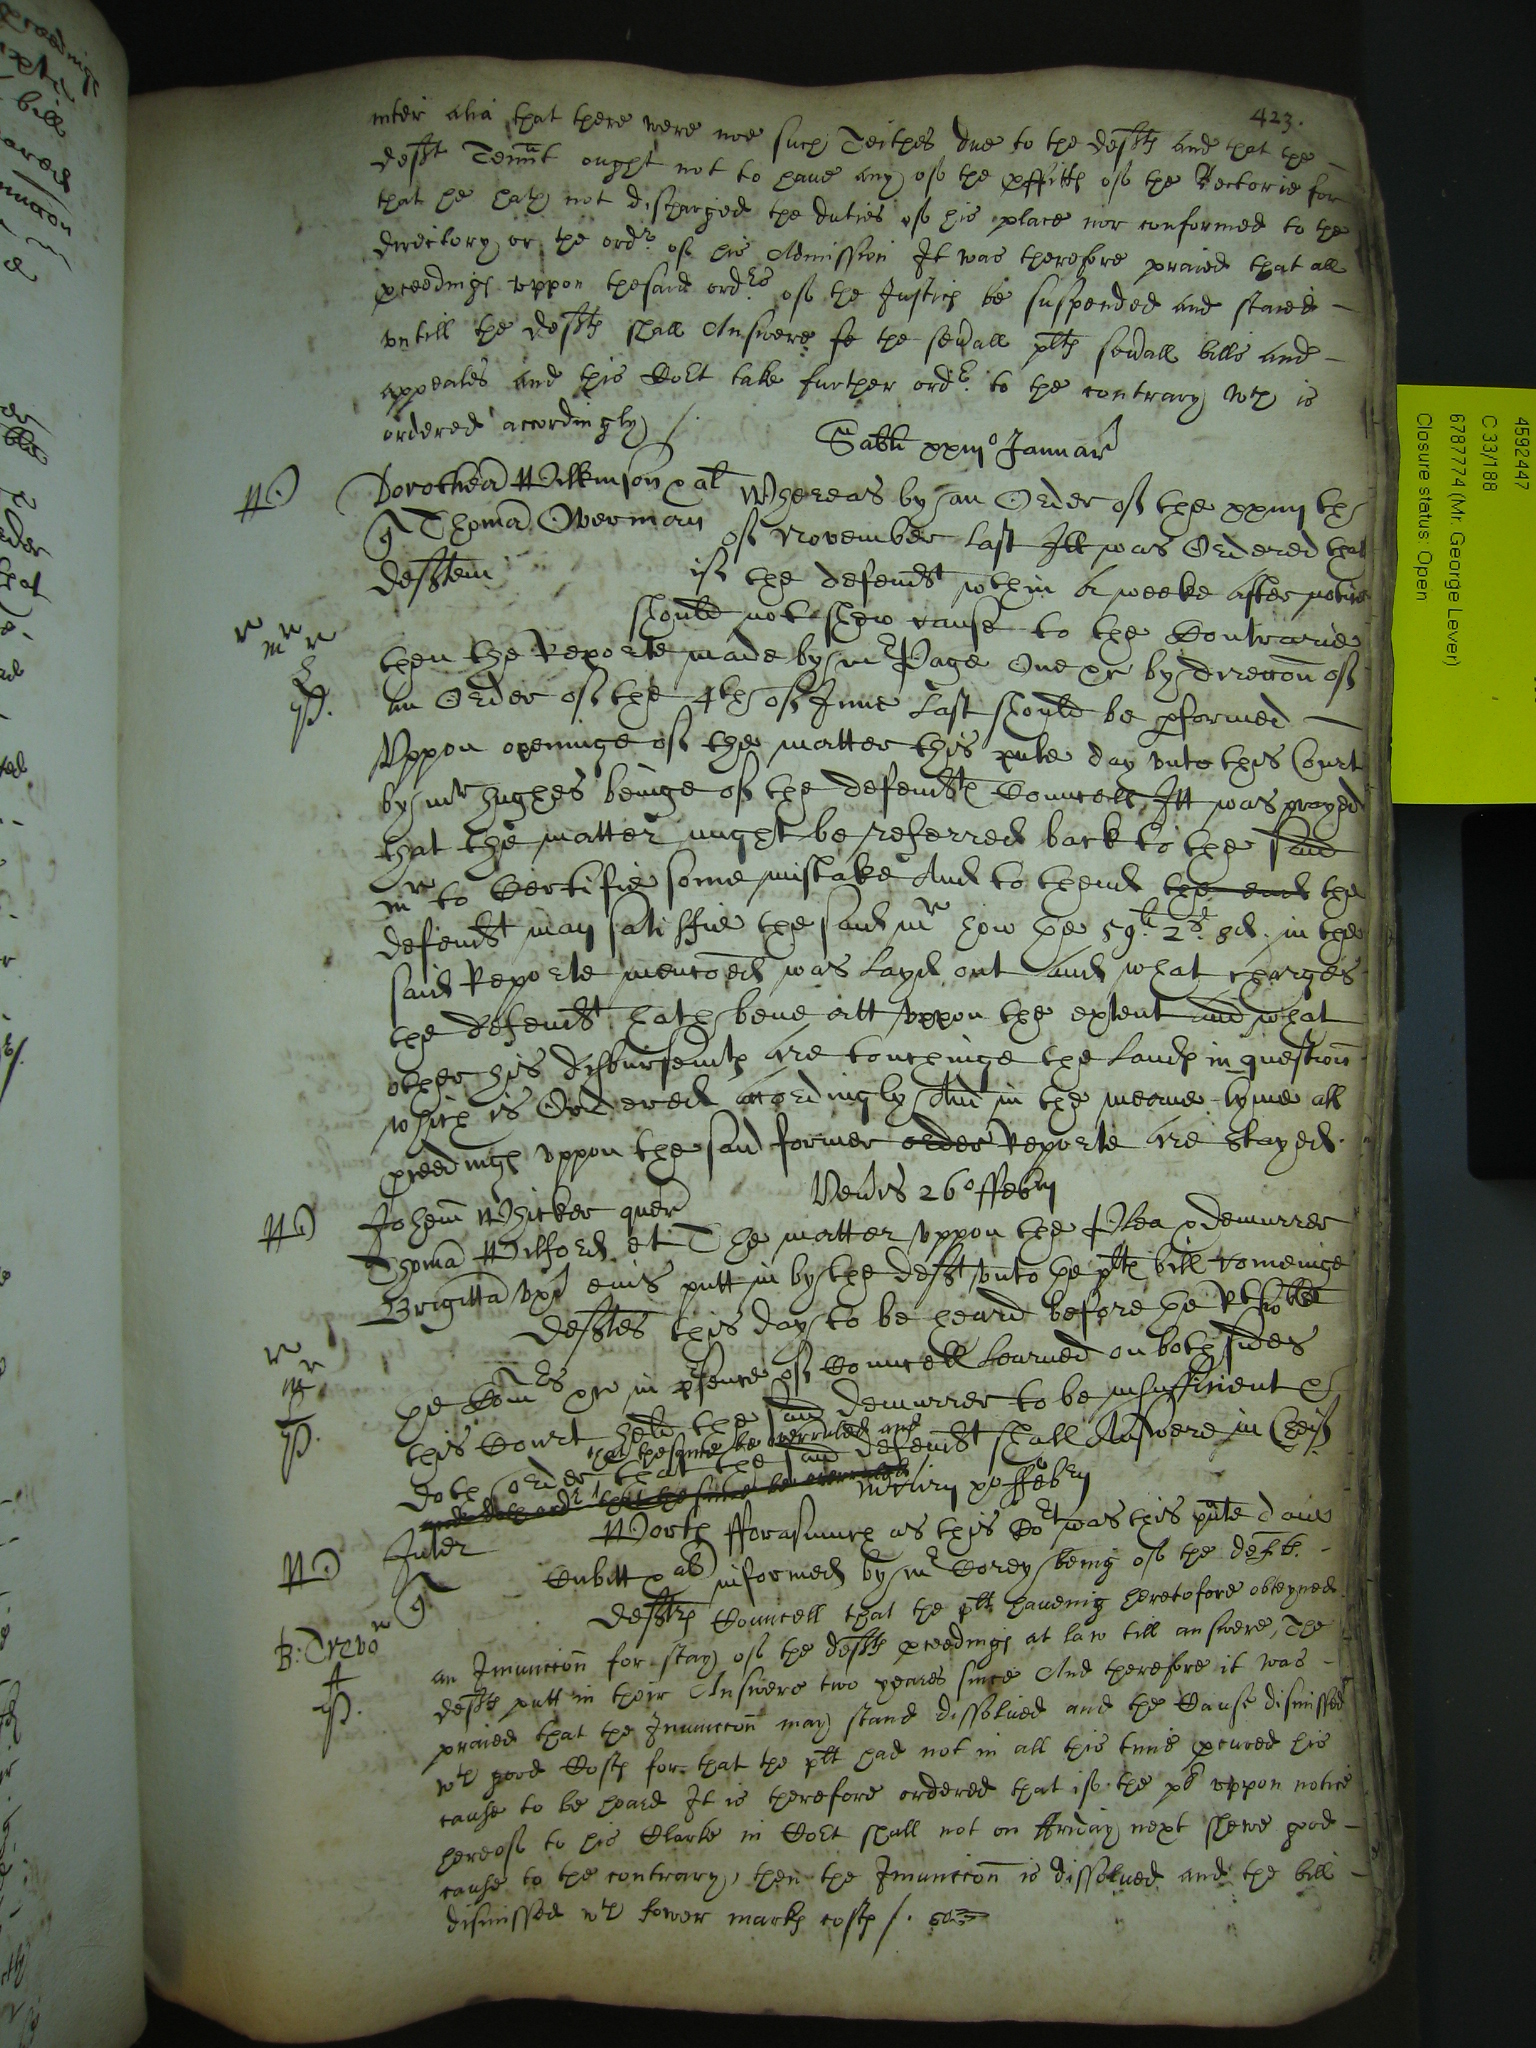 423.
inter alia that there were noe such Teithes due to the defts and that the
deft Tennt ought not to have any of the proffitts of the Rectorie for
that he hath not discharged the duties of his place nor conformed to the
directory or the ordr of his Admission It was therefore praied that all
pceedings uppon thesaid ordrs of the Justics be suspended and staied
untill the defts shall Answere to the sevall plts sevall bills and
appeales and this Cort take further ordr to the contrary wch is
ordered accordingly /.
Sabti xxiiio Januar
Dorothea Wilkinson x al Whereas by an Order of the xxiiii th
Thoma Overman of November last Itt was Ordered that
deftem if the defendt wthin a weeke after notice
should not shew cause to the Contrarie
then the Reporte made by mr Page One xc by direccon of
an Order of the 4th of June last should be pformed
Uppon openinge of the matter this pnte day unto this Court
by mr Hughes beinge of the defendts Councell Itt was prayed
that the matter might be referred back to the said
mr to Certifie some mistake And to thend the end the
defendt may satisfie the said mr how the 59l 2s 8d in the
said Reporte mencoed was layd out And what charges
the defendt hath bene att uppon the extent and what
other his disbursemts are touchinge the Lands in question
which is Ordered accordingly And in the meane tyme all
pceedings uppon the said former order Reporte are stayed.
Venis 26o ffebry
Johem Whicker quer
Thoma Wilford et The matter uppon the Plea x demurrer
Brigitta uxr eius putt in by the deft unto the plts bill comeinge
deftes this day to be heard before the Rt hoble
the Comrs xc in psence of Councell Learned on both sides
this Court held the said demurrer to be insufficient x
that thesame be overruled and
doth order that the said defendt shall Answere in Cheif
and doth ordr that the same be overruled
Mercurij xo ffebry
Inter North fforasmuch as this Cort was this pnte daie
Cubitt x al informed by mr Corey being of the deft.
defts Councell that the plt haveing heretofore obteyned
an Iniunccon for stay of the defts pceedings at law till answere, The
defts putt in their Answere two yeares since And therefore it was
praied that the Iniunccon may stand dissolved and the Cause dismissed
wth good Costs for that the plt had not in all this time pcured his
cause to be heard It is therefore ordered that if the plt uppon notice
hereof to his Clarke in Cort shall not on ffriday next shewe good
cause to the contrary, then the Iniunccon is dissolved and the bill
dismissed wth fower marks costs /.
B: Trevor
4592447
C 33/188
6787774 (Mr. George Lever)
Closure status: Open